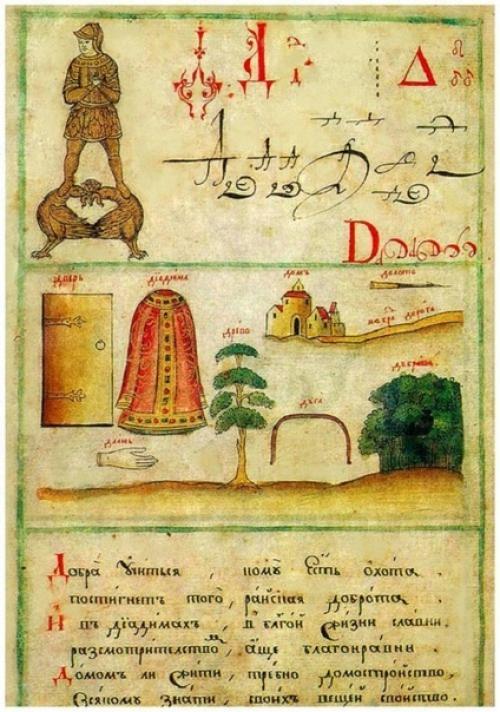 Д Д Δ
D
дверь діадима домъ долото
древо добра дорога
дуброва
дуга
длань
Добра учиться, кому есть охота.
постигнетъ того, райская доброта.
И въ діадимахъ, в благой жизни славни.
разсмотрителство, аще благонравни.
Домом ли жити, требно домостройство,
всякому знати, своихъ вещей свойство